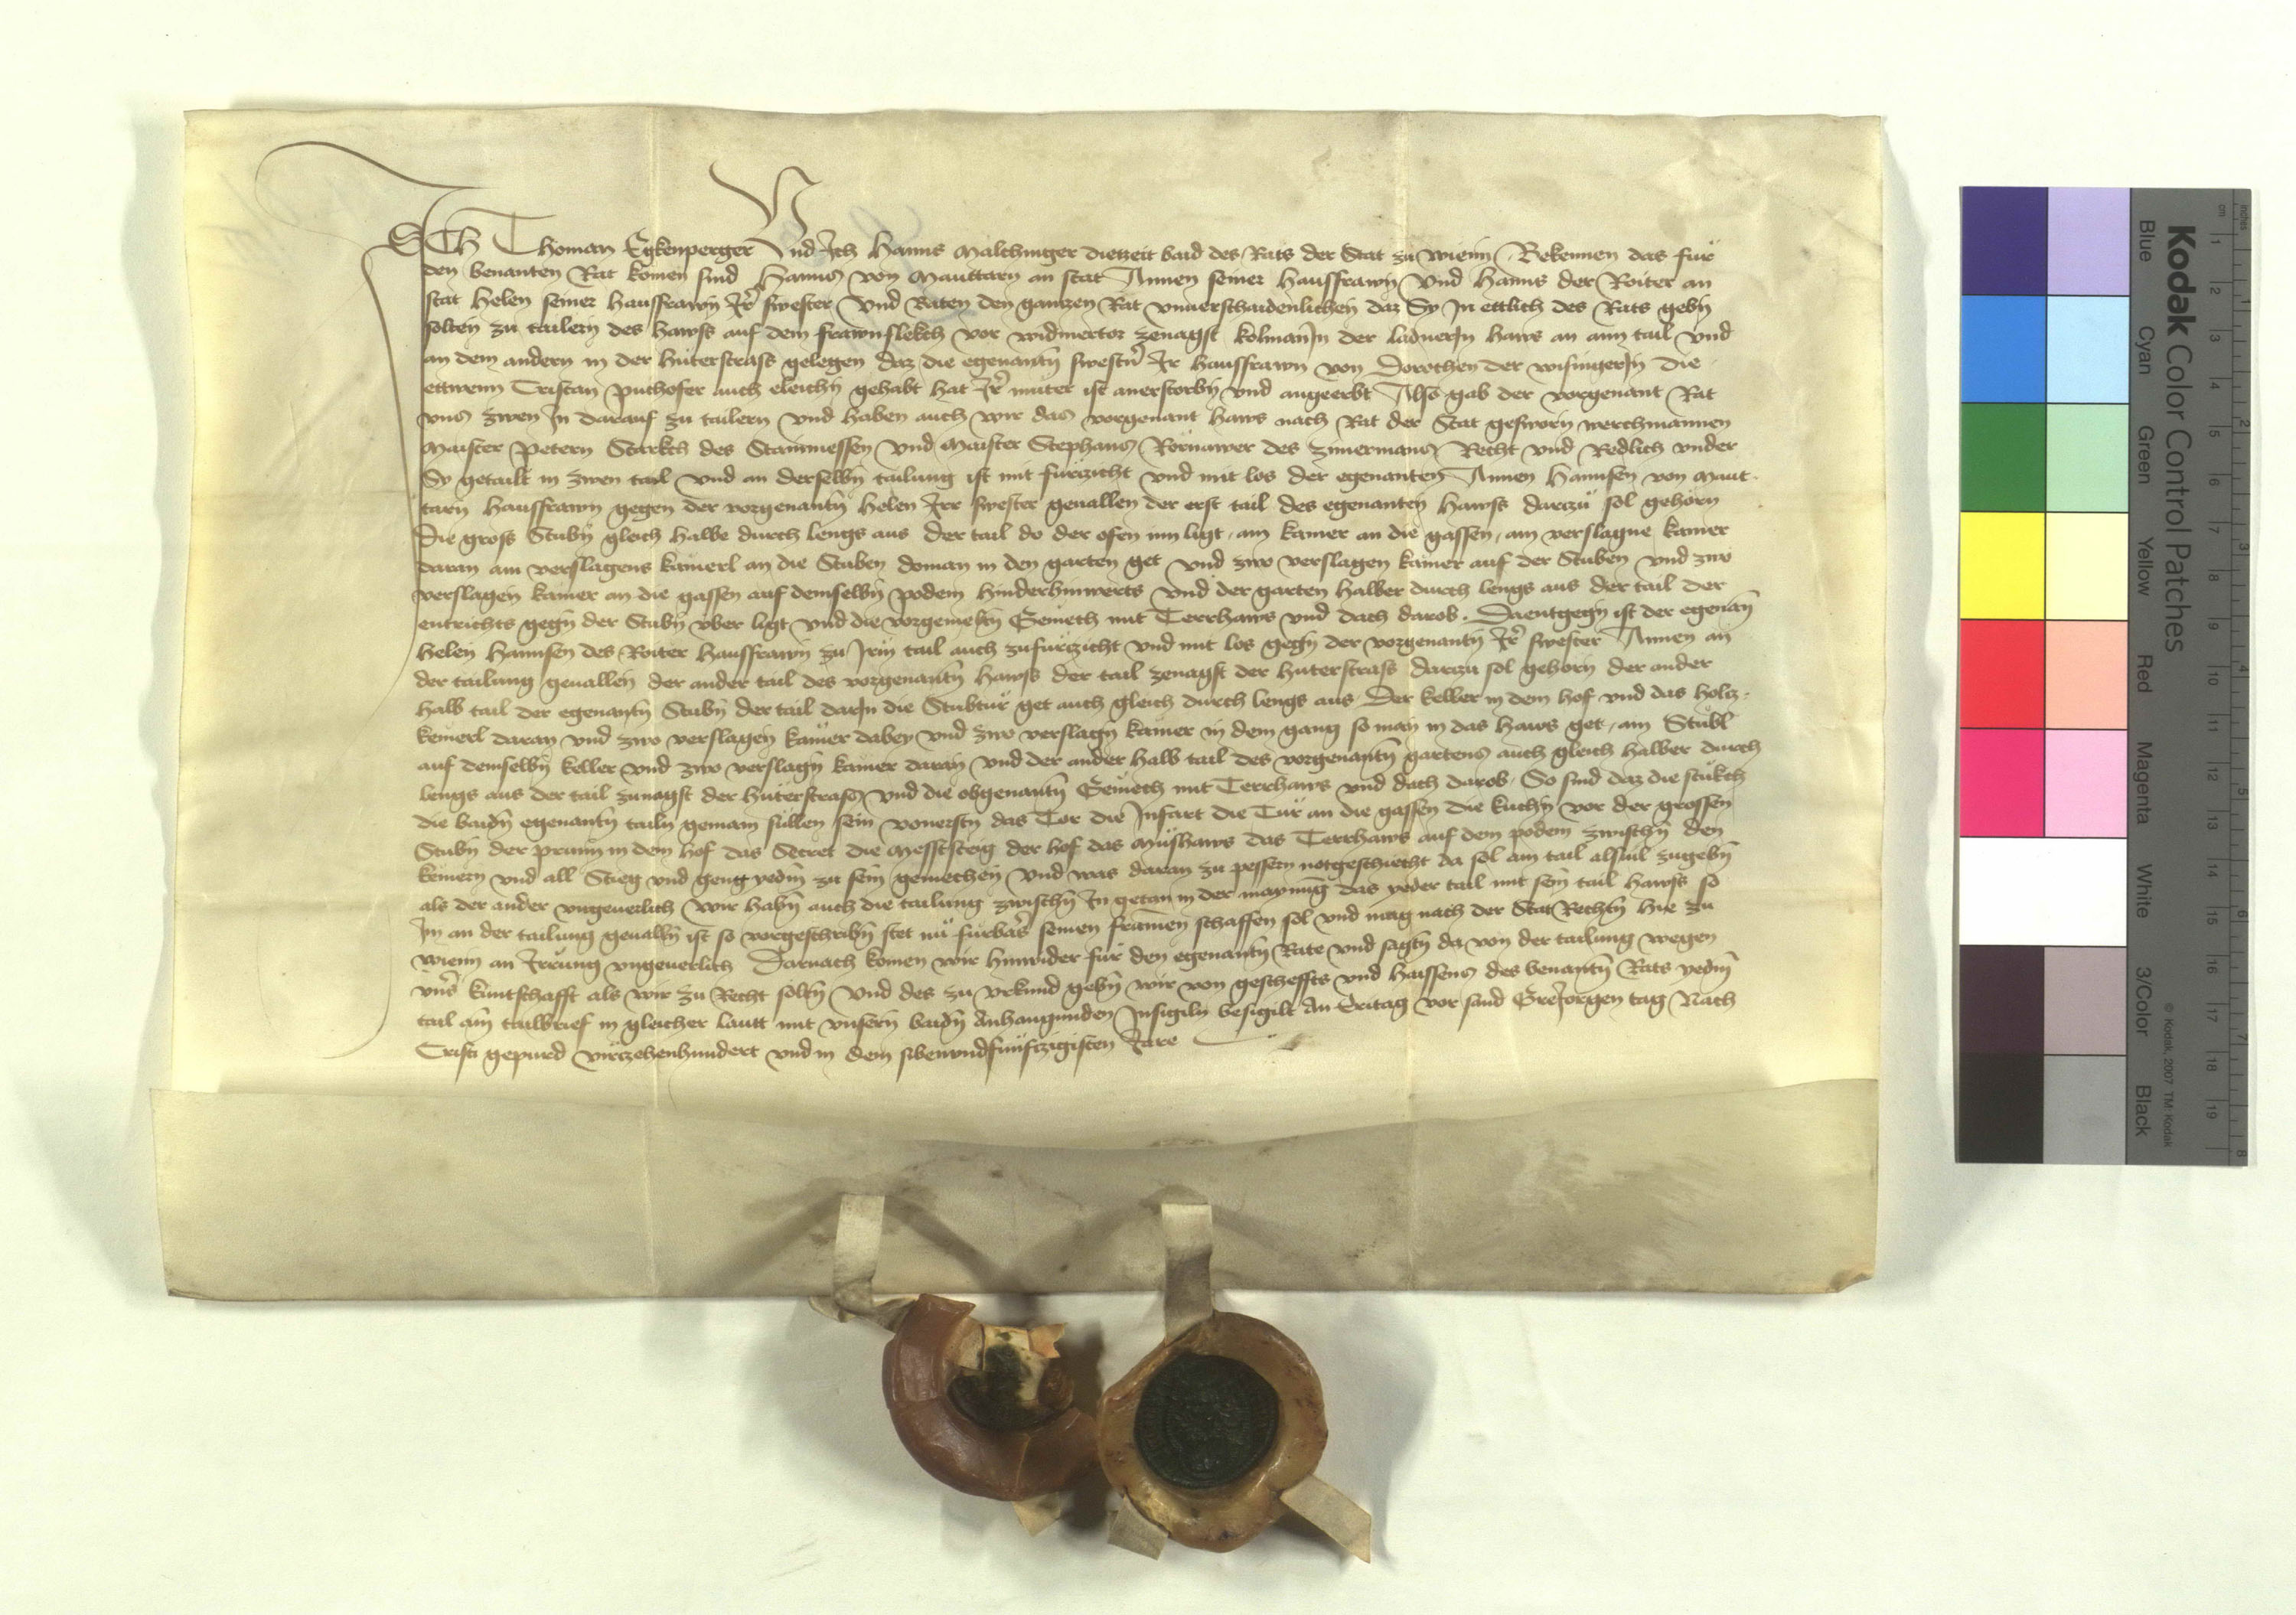 ICH Thoman Egkenperger Und Ich Hanns Malchinger dietzeit baid des Rats der Stat zu wienn Bekennen das fur
den benanten Rat komen sind Hanns von Mauttarn an stat Annen seiner Hausfrawn Und Hanns der Roiter an
stat Helen seiner hausfrawn Ir swester Und Baten den ganzen Rat vnuerschaidenlichen daz Sy In ettlich des Rats gebn
solten zu tailern des hawss auf dem frawnflekch vor widmertor zenagst kolmanIn der ladnerIn haws an aim tail Vnd
an dem andern in der Huterstrass gelegen daz die egenantn swestn Ir hausfrawn von Dorothen der wisingerIn die
ettwenn Cristan puthofer auch eleichn gehabt hat Ir muter ist anerstorbn vnd angeerbt Also gab der vorgenant Rat
vns zwen In darauf zu tailern vnd haben auch wir das vorgenant haws nach Rat der Stat gesworn werchmannen
Maister Petern Starkch des Stainmessen vnd Maister Stephans Rornawer des zimermans Recht vnd Redlich vnder
Sy getailt in zwen tail vnd an derselbn tailung ist mit furzicht vnd mit los der egenanten Annen Hannsen von Maut
tarn hausfrawn gegen der vorgenantn Helen Irr swester geuallen der erst tail des egenanten hawss darczu sol gehorn
Die gross Stubn gleich halbe durch lengs aus der tail do der ofen inn ligt am kamer an die gassen am verslagne kamer
daran am verslagens kamerl an die Stuben doman in den garten get vnd zwo verslagen kamer auf der Stuben vnd zwo
verslagen kamer an die gassen auf demselbn podem hinderhinwerts vnd der garten halber durch lengs aus der tail der
entrichts gegn der Stubn vber ligt vnd die vorgemeltn Gemech mit Terrhaws vnd dach darob. Daentgegn ist der egenan
Helen Hannsen des Roiter hausfrawn zu Irm tail auch zufurzicht vnd mit los gegn der vorgenantn Ir swester Annen an
der tailung geuallen der ander tail des vorgenantn hawss der tail zenagst der Huterstrass darczu sol gehorn der ander
halb tail der egenantn Stubn der tail darIn die Stubtur get auch gleich durch lengs aus. Der keller in dem hof vnd das holcz
kemerl daran vnd zwo verslagen kamer dabey vnd zwo verslagn kamer in dem gang so man in das haws get am Stubl
auf demselbn keller vnd zwo verslagn kamer daran vnd der ander halb tail des vorgenantn gartens auch gleich halber durch
lengs aus der tail zunagst der huterstrass vnd die obgenantn Gemech mit Terrhaws vnd dach darob. So sind daz die stukch
die baidn egenantn tailn gemain sullen sein vonerstn das Tor die Infart die Tur an die gassen die kuchn vor der grossen
Stubn der prunn in dem hof das Secret die Mesststeig der hof das Mushaws das Terrhaws auf dem podem zwischn den
kemern vnd all Stieg vnd geng yedm zu sein gemechen vnd was daran zu pessern notgeschiecht da sol am tail alsuil zugebn
als der ander vngeuerlich wir habn auch die tailung zwischn In getan in der maynung das yeder tail mit sein tail hawss so
Im an der tailung geualln ist so vorgeschribn stet nu furbas seinen frumen schaffen sol vnd mag nach der Stat Rechtn hie zu
wienn an Irrung vngeuerlich Darnach komen wir hinwider fur den egenantn Rate vnd sagtn da von der tailung wegen
vnsr kuntschafft als wir zu Recht soltn Vnd des zu vrkund gebn wir von gescheffts vnd haissens des benantn Rats yedm
tail ain tailbrief in gleicher lautt mit vnsern baidn Anhangunden Insigiln besigilt An Eritag vor sand GreJorgen tag Nach
Cristi gepurd virczehenhundert vnd in dem sibenvndfunfczigisten Jare
Kodak Color Control Patches
Blue Cyan Green Yellow Red Magenta White 3/Color Black
© Kodak, 2007 TM: Kodak
cm 1 2 3 4 5 6 7 8 9 10 11 12 13 14 15 16 17 18 19
inches 1 2 3 4 5 6 7 8